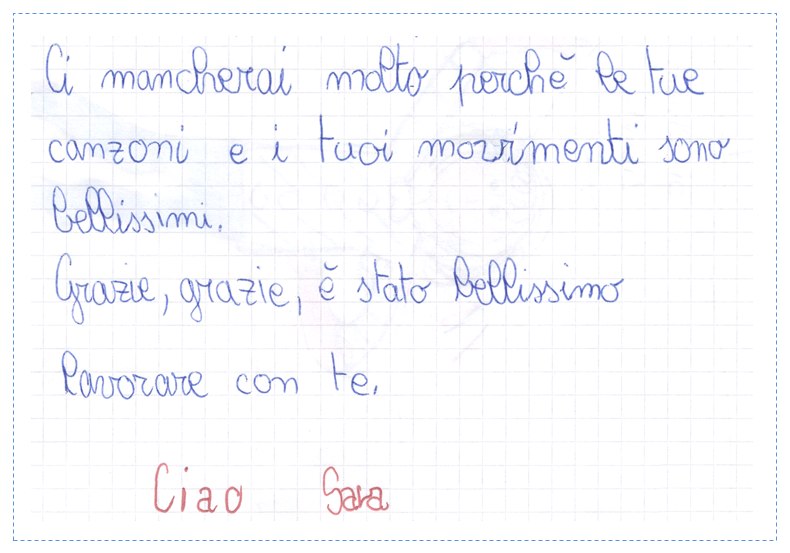 Ci mancherai molto perchè le tue
canzoni e i tuoi movimenti sono
bellissimi.
Grazie, grazie, è stato bellissimo
lavorare con te.
Ciao Sara